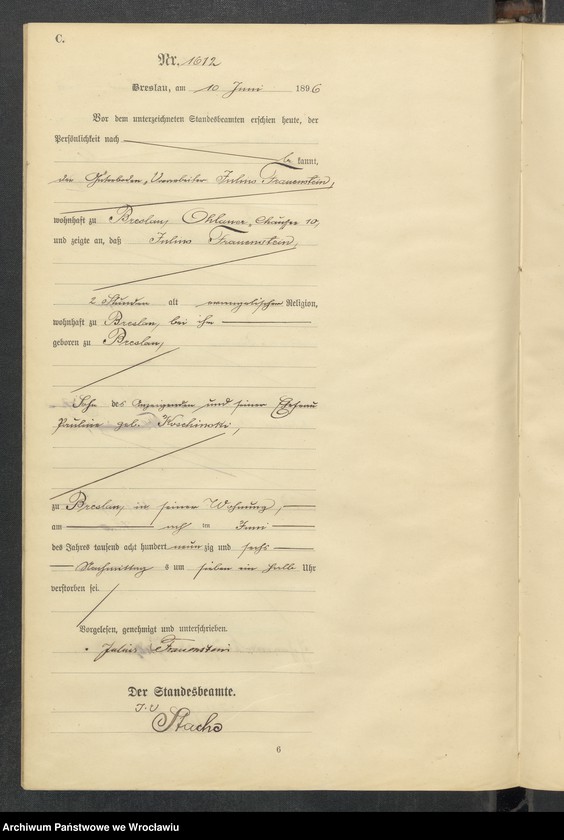 C.
Nr. 1612
Breslau, am 10 Juni 1896
Vor dem unterzeichneten Standesbeamten erschien heute, der
Persönlichkeit nach
be kannt,
der Vorarbeiter Julius Frauenstein,
wohnhaft zu Breslau, Ohlauer Chaussee 10,
und zeigte an, daß Julius Frauenstein,
2 Stunden alt evangelischer Religion,
wohnhaft zu Breslau, bei ihm
geboren zu Breslau,
Sohn des Anzeigenden und seiner Ehefrau
Pauline geb. Koschinski,
zu Breslau, in seiner Wohnung,
am ten Juni
des Jahres tausend acht hundert neun zig und sechs
Nachmittag s um sieben ein halb Uhr
verstorben sei.
Vorgelesen, genehmigt und unterschrieben.
Julius Frauenstein
Der Standesbeamte.
J. V
Stache
6
Archiwum Państwowe we Wrocławiu